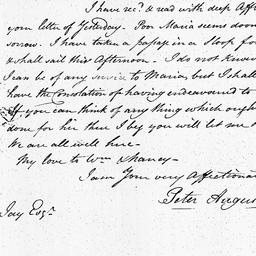 I have rec.d & read with deep Aff
your letter of Yesterday. Poor Maria seems doom
sorrow. I have taken a passage in a Sloop fo
& shall sail this Afternoon. I do not know
I can be of any service to Maria, but I shall
have the Consolation of having endeavoured to
If you can think of any thing which ough
done for her there I beg you will let me
We are all well here—
My love to Wm & Nancy—
I am Your very Affectiona
Peter Augus
Jay Esqr